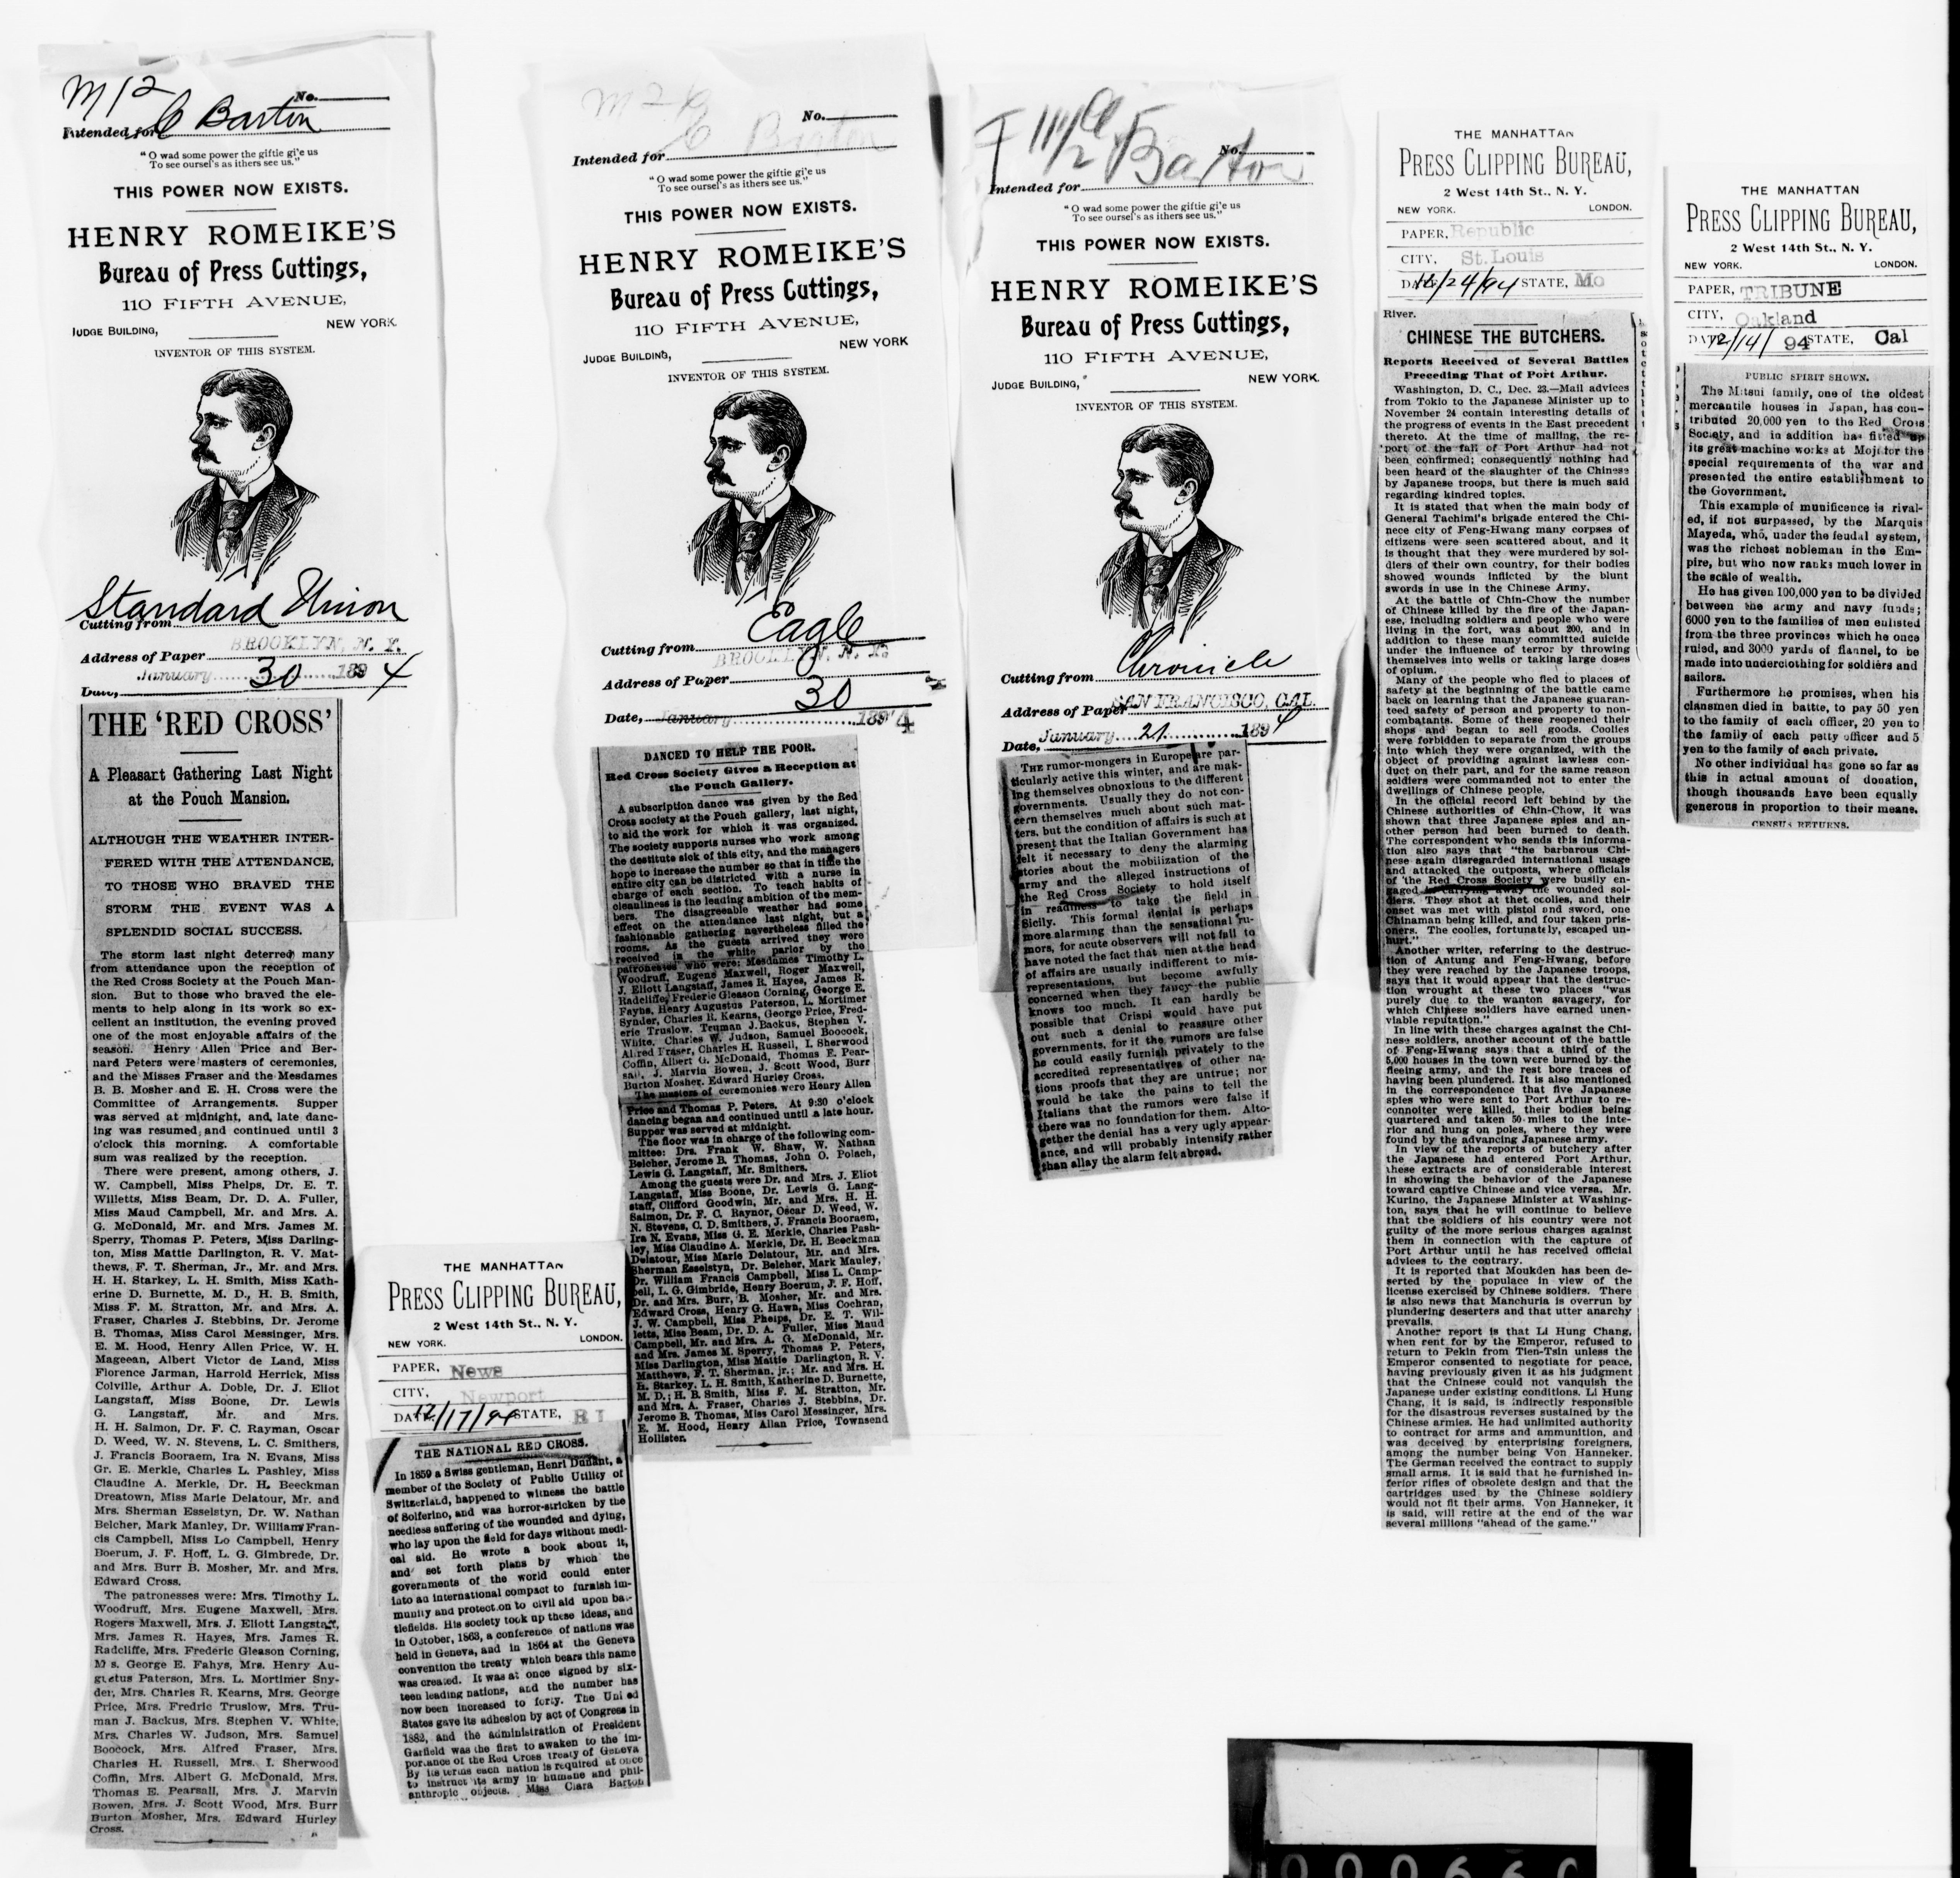 M12
No.
Intended for C Barton
"O wad some power the giftie gi'e us
To see oursel's as ithers see us."
THIS POWER NOW EXISTS.
HENRY ROMEIKE'S
Bureau of Press Cuttings,
110 FIFTH AVENUE,
JUDGE BUILDING,
NEW YORK.
INVENTOR OF THIS SYSTEM.
Standard Union
Cutting from
BROOKLYN, N. Y.
Address of Paper
January 30 1894
Date,
THE 'RED CROSS'
A Pleasart Gathering Last Night
at the Pouch Mansion.
ALTHOUGH THE WEATHER INTER-
FERED WITH THE ATTENDANCE,
TO THOSE WHO BRAVED THE
STORM THE EVENT WAS A
SPLENDID SOCIAL SUCCESS.
The storm last night deterred many
from attendance upon the reception of
the Red Cross Society at the Pouch Man-
sion. But to those who braved the ele-
ments to help along in its work so ex-
cellent an institution, the evening proved
one of the most enjoyable affairs of the
season. Henry Allen Price and Ber-
nard Peters were masters of ceremonies,
and the Misses Fraser and the Mesdames
B. B. Mosher and E. H. Cross were the
Committee of Arrangements. Supper
was served at midnight, and, late danc-
ing was resumed and continued until 3
o'clock this morning. A comfortable
sum was realized by the reception.
There were present, among others, J.
W. Campbell, Miss Phelps, Dr. E. T.
Willetts, Miss Beam, Dr. D. A. Fuller,
Miss Maud Campbell, Mr. and Mrs. A.
G. McDonald, Mr. and Mrs. James M.
Sperry, Thomas P. Peters, Miss Darling-
ton, Miss Mattie Darlington, R. V. Mat-
thews, F. T. Sherman, Jr., Mr. and Mrs.
H. H. Starkey, L. H. Smith, Miss Kath-
erine D. Burnette, M. D., H. B. Smith,
Miss F. M. Stratton, Mr. and Mrs. A.
Fraser, Charles J. Stebbins, Dr. Jerome
B. Thomas, Miss Carol Messinger, Mrs.
E. M. Hood, Henry Allen Price, W. H.
Mageean, Albert Victor de Land, Miss
Florence Jarman, Harrold Herrick, Miss
Colville, Arthur A. Doble, Dr. J. Eliot
Langstaff, Miss Boone, Dr. Lewis
G. Langstaff, Mr. and Mrs.
H. H. Salmon, Dr. F. C. Rayman, Oscar
D. Weed, W. N. Stevens, L. C. Smithers,
J. Francis Booraem, Ira N. Evans, Miss
Gr. E. Merkle, Charles L. Pashley, Miss
Claudine A. Merkle, Dr. H. Beeckman
Dreatown, Miss Marie Delatour, Mr. and
Mrs. Sherman Esselstyn, Dr. W. Nathan
Belcher, Mark Manley, Dr. William Fran-
cis Campbell, Miss Lo Campbell, Henry
Boerum, J. F. Hoff, L. G. Gimbrede, Dr.
and Mrs. Burr B. Mosher, Mr. and Mrs.
Edward Cross.
The patronesses were: Mrs. Timothy L.
Woodruff, Mrs. Eugene Maxwell, Mrs.
Rogers Maxwell, Mrs. J. Eliott Langstaff,
Mrs. James R. Hayes, Mrs. James R.
Radcliffe, Mrs. Frederic Gleason Corning,
M s. George E. Fahys, Mrs. Henry Au-
gustus Paterson, Mrs. L. Mortimer Sny-
der, Mrs. Charles R. Kearns, Mrs. George
Price, Mrs. Fredric Truslow, Mrs. Tru-
man J. Backus, Mrs. Stephen V. White,
Mrs. Charles W. Judson, Mrs. Samuel
Boocock, Mrs. Alfred Fraser, Mrs.
Charles H. Russell, Mrs. I. Sherwood
Coffin, Mrs. Albert G. McDonald, Mrs.
Thomas E. Pearsall, Mrs. J. Marvin
Bowen, Mrs. J. Scott Wood, Mrs. Burr
Burton Mosher, Mrs. Edward Hurley
Cross.
THE MANHATTAN
PRESS CLIPPING BUREAU,
2 West 14th St., N. Y.
NEW YORK. LONDON.
PAPER, News
CITY, Newport
DATE, 12/17/94 STATE, R I
THE NATIONAL RED CROSS.
In 1859 a Swiss gentleman, Henri Dunant, a
member of the Society of Public Utility of
Switzerland, happened to witness the battle
of Solferino, and was horror-stricken by the
needless suffering of the wounded and dying,
who lay upon the field for days without medi-
cal aid. He wrote a book about it,
and set forth plans by which the
governments of the world could enter
into an international compact to furnish im-
munity and protect.on to civil aid upon bat-
tlefields. His society took up these ideas, and
in October, 1863, a conference of nations was
held in Geneva, and in 1864 at the Geneva
convention the treaty which bears this name
was created. It was at once signed by six-
teen leading nations, and the number has
now been increased to forty. The Uni ed
States gave its adhesion by act of Congress in
1882, and the administration of President
Garfield was the first to awaken to the im-
por.ance of the Red Cross treaty of Geneva
By its terms each nation is required at once
to instruct its army in humane and phil-
anthropic objects. Miss Clara Barton
M 2
No.
C Barton
Intended for
"O wad some power the giftie gi'e us
To see oursel's as ithers see us."
THIS POWER NOW EXISTS.
HENRY ROMEIKE'S
Bureau of Press Cuttings,
110 FIFTH AVENUE,
JUDGE BUILDING,
NEW YORK
INVENTOR OF THIS SYSTEM.
Eagle
Cutting from
BROOKLYN, N. Y.
Address of Paper
30
Date, January 1894
DANCED TO HELP THE POOR.
Red Cross Society Gives a Reception at
the Pouch Gallery.
A subscription dance was given by the Red
Cross society at the Pouch gallery, last night,
to aid the work for which it was organized.
The society supports nurses who work among
the destitute sick of this city, and the managers
hope to increase the number so that in time the
entire city can be districted with a nurse in
charge of each section. To teach habits of
cleanliness is the leading ambition of the mem-
bers. The disagreeable weather had some
effect on the attendance last night, but a
fashionable gathering nevertheless filled the
rooms. As the guests arrived they were
received in the white parlor by the
patronesses who were: Mesdames Timothy L.
Woodruff, Eugene Maxwell, Roger Maxwell,
J. Eliott Langstaff, James R. Hayes, James R.
Radcliffe, Frederic Gleason Corning, George E.
Fayns, Henry Augustus Paterson, L. Mortimer
Synder, Charles R. Kearns, George Price, Fred-
eric Truslow, Truman J. Backus, Stephen V.
White, Charles W. Judson, Samuel Boocock,
Alfred Fraser, Charles H. Russell, I. Sherwood
Coffin, Albert G. McDonald, Thomas E. Pear-
sall, J. Marvin Bowen, J. Scott Wood, Burr
Burton Mosher, Edward Hurley Cross.
The masters of ceremonies were Henry Allen
Price and Thomas P. Peters. At 9:30 o'clock
dancing began and continued until a late hour.
Supper was served at midnight.
The floor was in charge of the following com-
mittee: Drs. Frank W. Shaw, W. Nathan
Belcher, Jerome B. Thomas, John O. Polach,
Lewis G. Langstaff, Mr. Smithers.
Among the guests were Dr. and Mrs. J. Eliot
Langstaff, Miss Boone, Dr. Lewis G. Lang-
staff, Clifford Goodwin, Mr. and Mrs. H. H.
Salmon, Dr. F. C. Raynor, Oscar D. Weed, W.
N. Stevens, C. D. Smithers, J. Francis Booraem,
Ira N. Evans, Miss G. E. Merkle, Charles Pash-
ley, Miss Claudine A. Merkle, Dr. H. Beeckman
Delatour, Miss Marie Delatour, Mr. and Mrs.
Sherman Esselstyn, Dr. Belcher, Mark Mauley,
Dr. William Francis Campbell, Miss L. Camp-
bell, L. G. Gimbride, Henry Boerum, J. F. Hoff,
Dr. and Mrs. Burr, B. Mosher, Mr. and Mrs.
Edward Cross, Henry G. Hawn, Miss Cochran,
J. W. Campbell, Miss Phelps, Dr. E. T. Wil-
letts, Miss Beam, Dr. D. A. Fuller, Miss Maud
Campbell, Mr. and Mrs. A. G. McDonald, Mr.
and Mrs. James M. Sperry, Thomas P. Peters,
Miss Darlington, Miss Mattie Darlington, R. V.
Matthews, F. T. Sherman, jr.; Mr. and Mrs. H.
H. Starkey, L. H. Smith, Katherine D. Burnette,
M. D.; H. B. Smith, Miss F. M. Stratton, Mr.
and Mrs. A. Fraser, Charles J. Stebbins, Dr.
Jerome B. Thomas, Miss Carol Messinger, Mrs.
E. M. Hood, Henry Allan Price, Townsend
Hollister.
Barton
No.
Intended for
"O wad some power the giftie gi'e us
To see oursel's as ithers see us."
THIS POWER NOW EXISTS.
HENRY ROMEIKE'S
Bureau of Press Cuttings,
110 FIFTH AVENUE,
JUDGE BUILDING,
NEW YORK.
INVENTOR OF THIS SYSTEM.
Chronicle
Cutting from
SAN FRANCISCO, CAL.
Address of Paper
January 21 1894
Date,
THE rumor-mongers in Europe are par-
ticularly active this winter, and are mak-
ing themselves obnoxious to the different
governments. Usually they do not con-
cern themselves much about such mat-
ters, but the condition of affairs is such at
present that the Italian Government has
felt it necessary to deny the alarming
stories about the mobilization of the
army and the alleged instructions of
the Red Cross Society to hold itself
in readiness to take the field in
Sicily. This formal denial is perhaps
more alarming than the sensational ru-
mors, for acute observers will not fail to
have noted the fact that men at the head
of affairs are usually indifferent to mis-
representations, but become awfully
concerned when they fancy the public
knows too much. It can hardly be
possible that Crispi would have put
out such a denial to reassure other
governments, for if the rumors are false
he could easily furnish privately to the
accredited representatives of other na-
tions proofs that they are untrue; nor
would he take the pains to tell the
Italians that the rumors were false if
there was no foundation for them. Alto-
gether the denial has a very ugly appear-
ance, and will probably intensify rather
than allay the alarm felt abroad.
THE MANHATTAN
PRESS CLIPPING BUREAU,
2 West 14th St., N. Y.
NEW YORK. LONDON.
PAPER, Republic
CITY, St. Louis
DATE, 12/24/94 STATE, Mo
River.
CHINESE THE BUTCHERS.
Reports Received of Several Battles
Preceding That of Port Arthur.
Washington, D. C., Dec. 23.—Mail advices
from Tokio to the Japanese Minister up to
November 24 contain interesting details of
the progress of events in the East precedent
thereto. At the time of mailing, the re-
port of the fall of Port Arthur had not
been confirmed; consequently nothing had
been heard of the slaughter of the Chinese
by Japanese troops, but there is much said
regarding kindred topics.
It is stated that when the main body of
General Tachimi's brigade entered the Chi-
nece city of Feng-Hwang many corpses of
citizens were seen scattered about, and it
is thought that they were murdered by sol-
diers of their own country, for their bodies
showed wounds inflicted by the blunt
swords in use in the Chinese Army.
At the battle of Chin-Chow the number
of Chinese killed by the fire of the Japan-
ese, including soldiers and people who were
living in the fort, was about 200, and in
addition to these many committed suicide
under the influence of terror by throwing
themselves into wells or taking large doses
of opium.
Many of the people who fled to places of
safety at the beginning of the battle came
back on learning that the Japanese guaran-
teed safety of person and property to non-
combatants. Some of these reopened their
shops and began to sell goods. Coolies
were forbidden to separate from the groups
into which they were organized, with the
object of providing against lawless con-
duct on their part, and for the same reason
soldiers were commanded not to enter the
dwellings of Chinese people.
In the official record left behind by the
Chinese authorities of Chin-Chow, it was
shown that three Japanese spies and an-
other person had been burned to death.
The correspondent who sends this informa-
tion also says that "the barbarous Chi-
nese again disregarded international usage
and attacked the outposts, where officials
of the Red Cross Society were busily en-
gaged in carrying away the wounded sol-
diers. They shot at thet ccolies, and their
onset was met with pistol and sword, one
Chinaman being killed, and four taken pris-
oners. The coolies, fortunately, escaped un-
hurt."
Another writer, referring to the destruc-
tion of Antung and Feng-Hwang, before
they were reached by the Japanese troops,
says that it would appear that the destruc-
tion wrought at these two places "was
purely due to the wanton savagery, for
which Chinese soldiers have earned unen-
viable reputation."
In line with these charges against the Chi-
nese soldiers, another account of the battle
of Feng-Hwang says that a third of the
5,000 houses in the town were burned by the
fleeing army, and the rest bore traces of
having been plundered. It is also mentioned
in the correspondence that five Japanese
spies who were sent to Port Arthur to re-
connoiter were killed, their bodies being
quartered and taken 50 miles to the inte-
rior and hung on poles, where they were
found by the advancing Japanese army.
In view of the reports of butchery after
the Japanese had entered Port Arthur,
these extracts are of considerable interest
in showing the behavior of the Japanese
toward captive Chinese and vice versa. Mr.
Kurino, the Japanese Minister at Washing-
ton, says that he will continue to believe
that the soldiers of his country were not
guilty of the more serious charges against
them in connection with the capture of
Port Arthur until he has received official
advices to the contrary.
It is reported that Moukden has been de-
serted by the populace in view of the
license exercised by Chinese soldiers. There
is also news that Manchuria is overrun by
plundering deserters and that utter anarchy
prevails.
Another report is that Li Hung Chang,
when rent for by the Emperor, refused to
return to Pekin from Tien-Tsin unless the
Emperor consented to negotiate for peace,
having previously given it as his judgment
that the Chinese could not vanquish the
Japanese under existing conditions. Li Hung
Chang, it is said, is indirectly responsible
for the disastrous reverses sustained by the
Chinese armies. He had unlimited authority
to contract for arms and ammunition, and
was deceived by enterprising foreigners,
among the number being Von Hanneker.
The German received the contract to supply
small arms. It is said that he furnished in-
ferior rifles of obsolete design and that the
cartridges used by the Chinese soldiery
would not fit their arms. Von Hanneker, it
is said, will retire at the end of the war
several millions "ahead of the game."
THE MANHATTAN
PRESS CLIPPING BUREAU,
2 West 14th St., N. Y.
NEW YORK. LONDON.
PAPER, TRIBUNE
CITY, Oakland
DATE, 12/14/94 STATE, Cal
PUBLIC SPIRIT SHOWN.
The Mitsui family, one of the oldest
mercantile houses in Japan, has con-
tributed 20,000 yen to the Red Cross
Society, and in addition has fitted up
its great machine works at Moji for the
special requirements of the war and
presented the entire establishment to
the Government.
This example of munificence is rival-
ed, if not surpassed, by the Marquis
Mayeda, who, under the feudal system,
was the richest nobleman in the Em-
pire, but who now ranks much lower in
the scale of wealth.
He has given 100,000 yen to be divided
between the army and navy funds;
6000 yen to the families of men enlisted
from the three provinces which he once
ruled, and 3000 yards of flannel, to be
made into underclothing for soldiers and
sailors.
Furthermore he promises, when his
clansmen died in battle, to pay 50 yen
to the family of each officer, 20 yen to
the family of each petty officer and 5
yen to the family of each private.
No other individual has gone so far as
this in actual amount of donation,
though thousands have been equally
generous in proportion to their means.
CENSUS RETURNS.